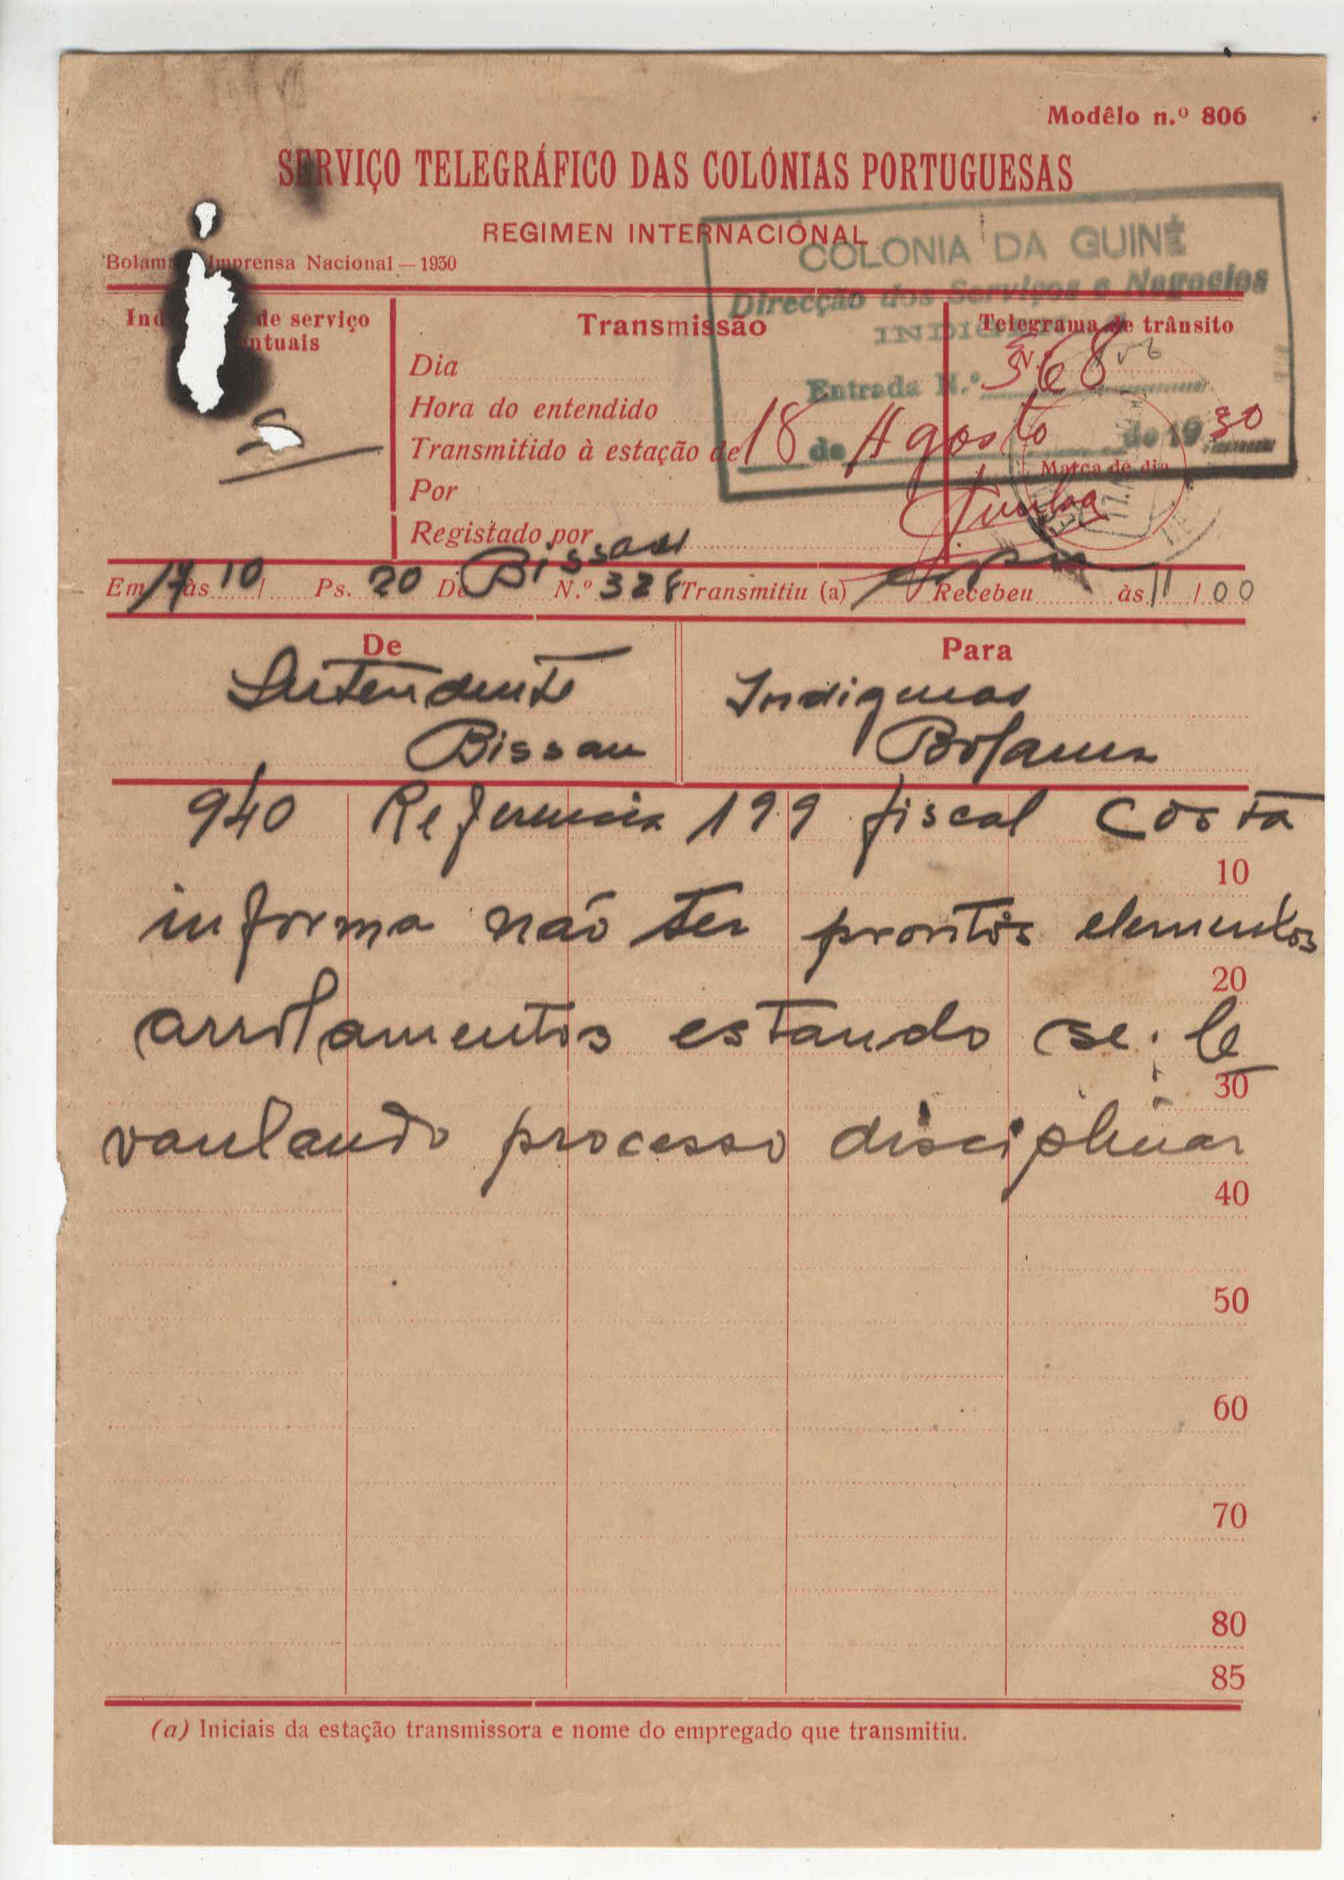 Modêlo n.º 806
SERVIÇO TELEGRÁFICO DAS COLÓNIAS PORTUGUESAS
REGIMEN INTERNACIONAL
Imprensa Nacional — 1930
COLONIA DA GUINÉ
Direcção dos Serviços e Negocios
INDIGENAS
Entrada N.º 568
18 de Agosto de 1930
de serviço
Transmissão
Telegrama de trânsito
N.º
Dia
Hora do entendido
Transmitido à estação de
Marca de dia
Por
Registado por
Em 17 às 10 / Ps. 20 De Bissau N.º 328 Transmitiu (a) Recebeu às 11 / 00
De
Para
Intendente
Indigenas
Bissau
Bolama
940 Referencia 199 fiscal Costa
10
informa não ter prontos elementos
20
arrolamentos estando se. le
30
vantando processo disciplinar
40
50
60
70
80
85
(a) Iniciais da estação transmissora e nome do empregado que transmitiu.